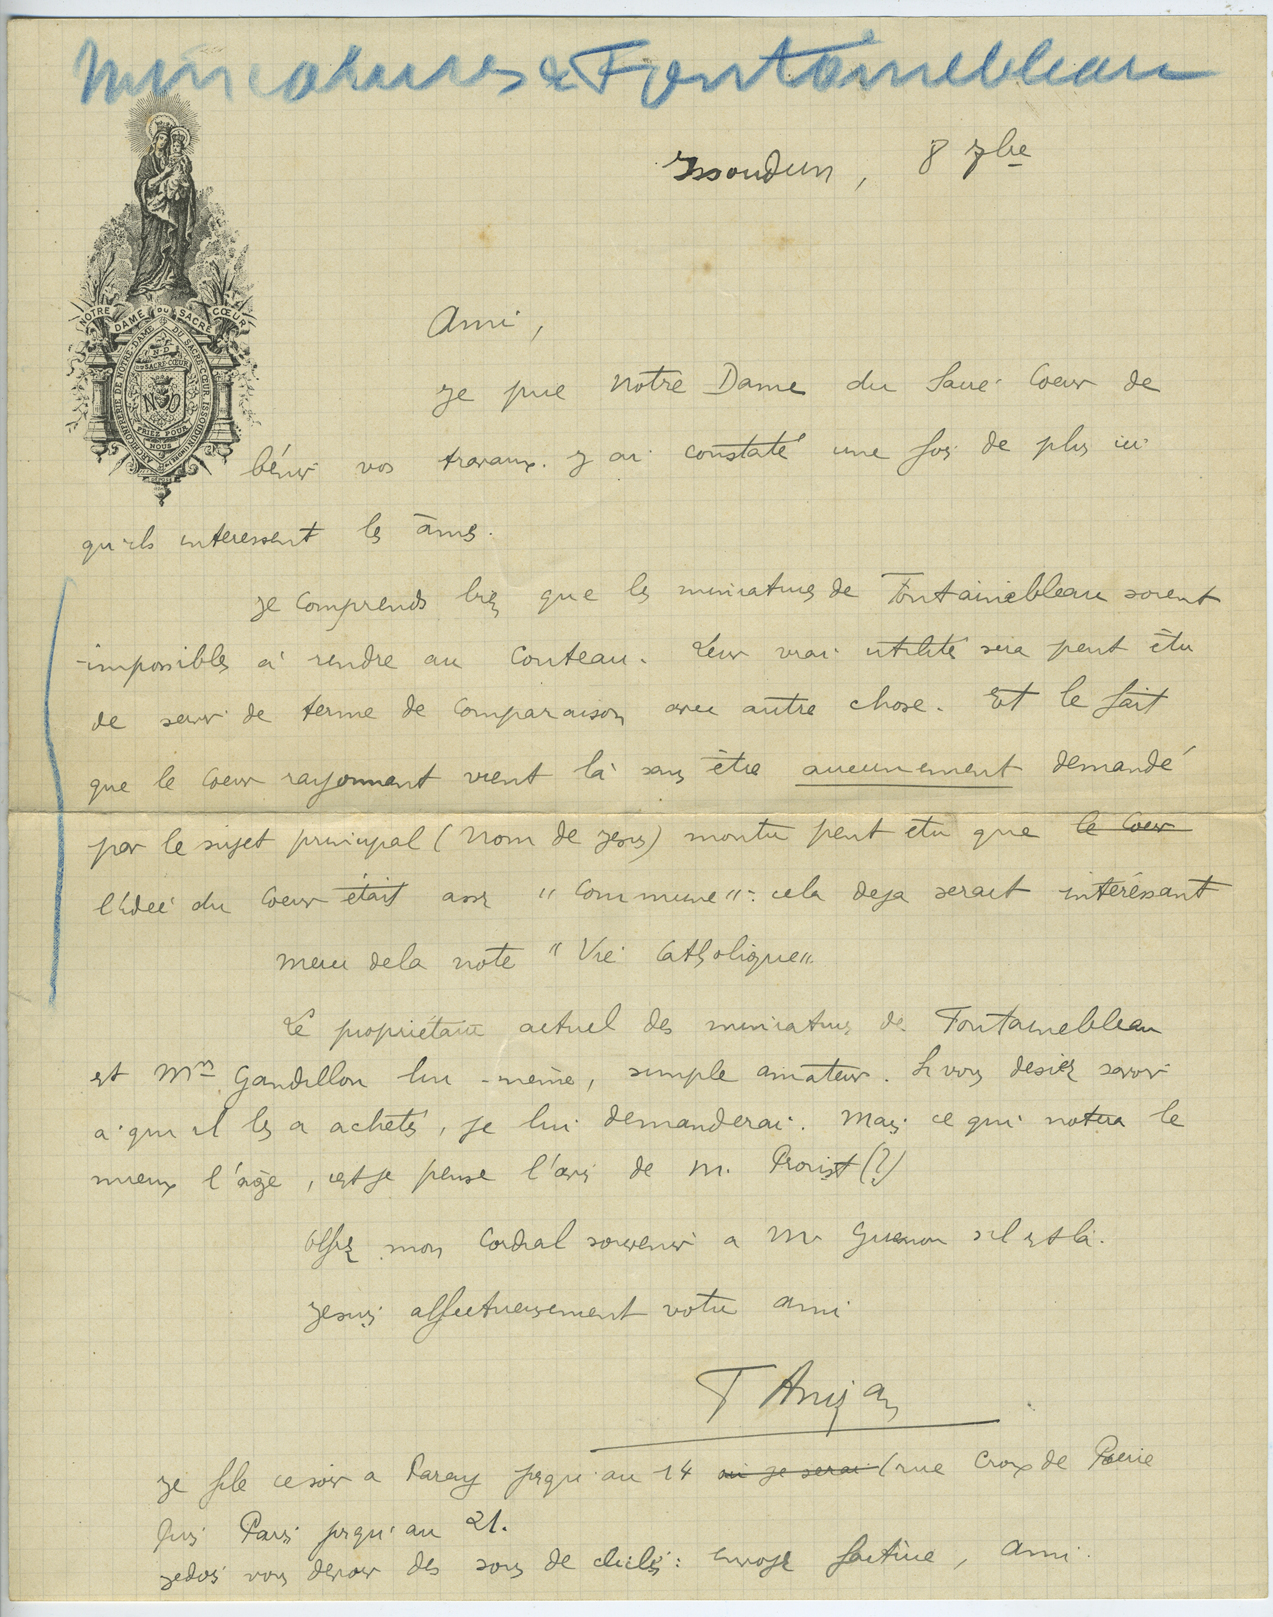 Miniatures de Fontainebleau
Issoudun, 8 7bre
NOTRE DAME DU SACRÉ CŒUR
ARCHICONFRÉRIE DE NOTRE-DAME DU SACRÉ-CŒUR ISSOUDUN
N D
DU SACRÉ-CŒUR
PRIEZ POUR
NOUS
Ami,
Je prie Notre Dame du Sacré Coeur de
bénir vos travaux. J ai constaté une fois de plus ici
qu'ils interessent les âmes.
Je comprends bien que les miniatures de Fontainebleau soient
impossibles à rendre au Couteau. Leur vraie utilité sera peut être
de servir de terme de Comparaison avec autre chose. Et le fait
que le Coeur rayonnant vient là sans être aucunement demandé
par le sujet principal (Nom de Jesus) montre peut etre que le Coeur
l'idée du Coeur était assez "Commune": cela deja serait intéressant
Merci de la note "Vie Catholique"
Le propriétaire actuel des miniatures de Fontainebleau
est Mr Gandillon lui-même, simple amateur. Si vous desirez savoir
à qui il les a achetés, je lui demanderai. Mais ce qui notera le
mieux l'âge, c'est je pense l'avis de M. Proust (?)
Offrez mon Cordial souvenir a Mr Guenon s'il est là.
Je suis affectueusement votre ami
F Anizan
Je file ce soir a Paray jusqu'au 14 où je serai (rue Croix de Pierre
Puis Paris jusqu'au 21.
Je dois vous devoir des sous de clichés: envoyez factüre, ami.